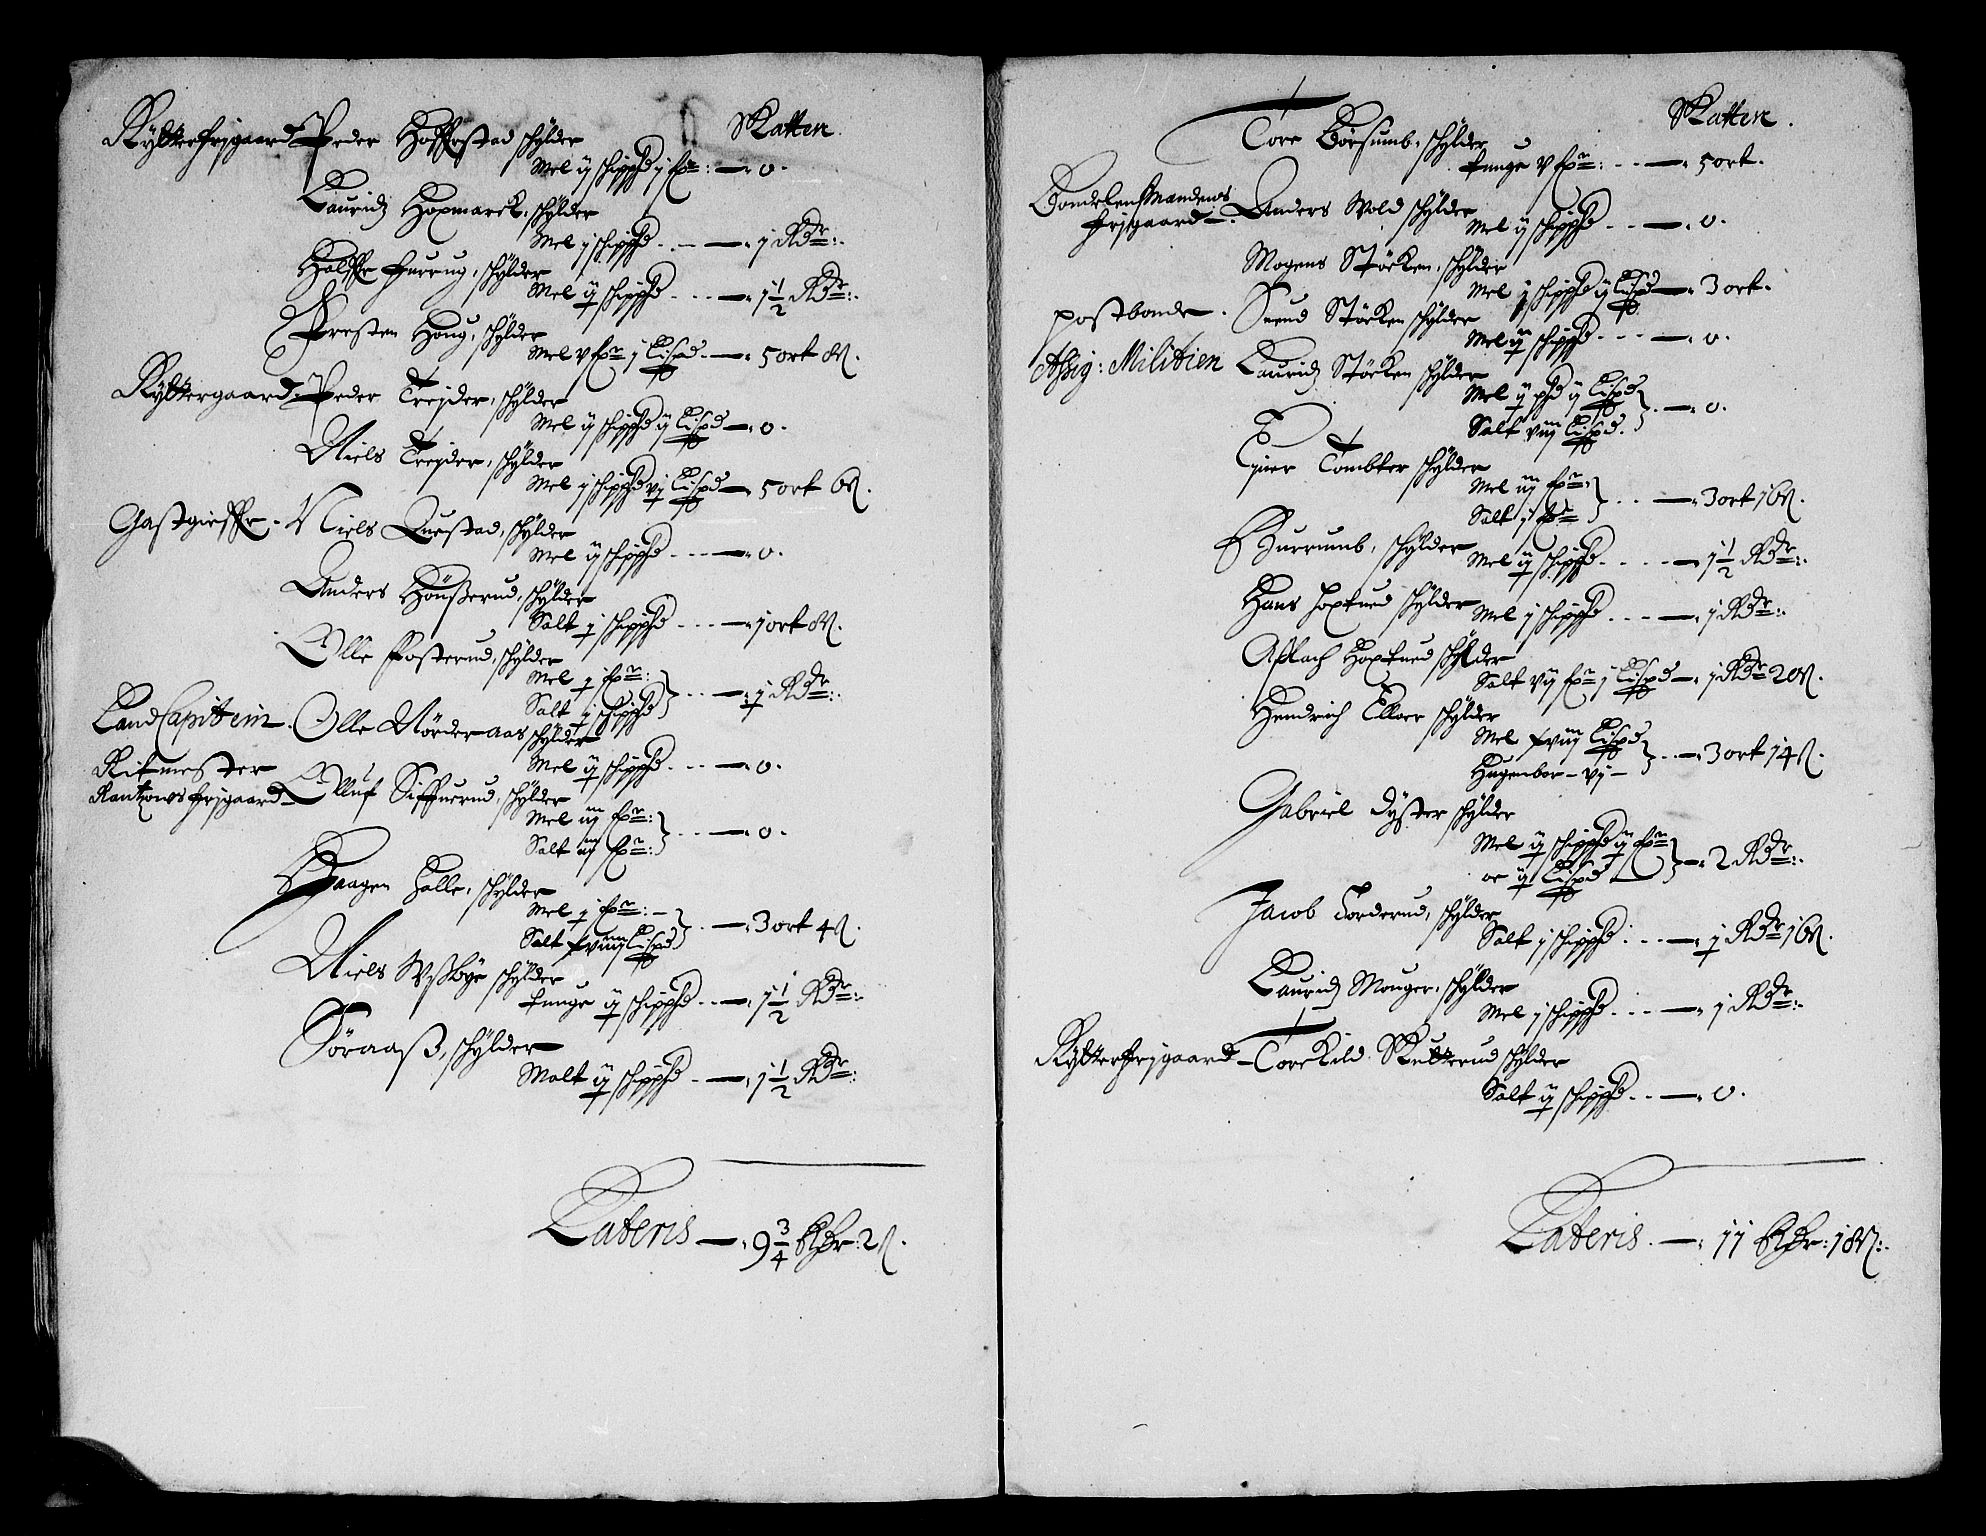 Skatten
Rytterfrigaard Peder Hoffstad schylder
Mel ij schippd j fr: — 0.
Lauridz Hoxmarck, schylder
Mel j schippd — 1 Rdr:
Haluffr schylder
Mel ij schippd — 1½ Rdr:
Presten Houg, schylder
Mel v fr j Lispd — 5 ort 8 s.
Ryttergaard Peder Trejder, schylder
Mel ij schippd ij Lispd — 0.
Niels Trejder, schylder
Mel j schippd vj Lispd — 5 ort 6 s.
Gastgieffr. Niels Questad, schylder
Mel ij schippd — 0.
Anders Hönßerud, schylder
Salt j schippd — 1 ort 8 s.
Olle Fosterud, schylder
Mel j fr:
Salt j schippd — 1 Rdr:
Land Capitein. Olle Nörderaas schylder
Mel ij schippd — 0.
Ritmester
Rantzows frjgaard Olluf Siffuerud, schylder
Mel iij fr:
Salt iij fr: — 0.
Haagen Holle, schylder
Mel j fr:
Salt xviij Lispd — 3 ort 4 s.
Niels Wßbye schylder
tunge ij schippd — 1½ Rdr:
Söraaß, schylder
Malt ij schippd — 1½ Rdr:
Lateris — 9¾ Rdr: 2 s.
Skatten.
Tore Börsumb, schylder
tunge v fr: — 5 ort.
Bondelensmandens
frjgaard Anders Wold schylder
Mel ij schippd — 0.
Mogens Stöcken, schylder
Mel j schippd ij Lispd — 3 ort.
postbonde. Suend Stöcken schylder
Mel ij schippd — 0.
Assig: Militien Lauridz Stöcken schylder
Mel ij pd ij Lispd
Salt viij Lispd. — 0.
Ejuer Tombter schylder
Mel iiij fr:
Salt j fr — 3 ort 16 s.
Burrumb, schylder
Mel ij schippd — 1½ Rdr:
Hans Hoxtued schylder
Mel j schippd — 1 Rdr:
Aslach Hoxtued schylder
Salt vij fr j Lispd — 1 Rdr 20 s.
Hendrich Elloer schylder
Mel xviij Lispd
Hugenbor — vj — 3 ort 14 s.
Gabriel Dyster schylder
Mel ij schippd ij fr
oc ij Lispd — 2 Rdr:
Jacob Forderud, schylder
Salt j schippd — 1 Rdr 16 s.
Lauridz Mouger, schylder
Mel j schippd — 1 Rdr:
Rytterfrjgaard Torekild Skutterud schylder
Salt ij schippd — 0.
Lateris. — 11 Rdr: 18 s: